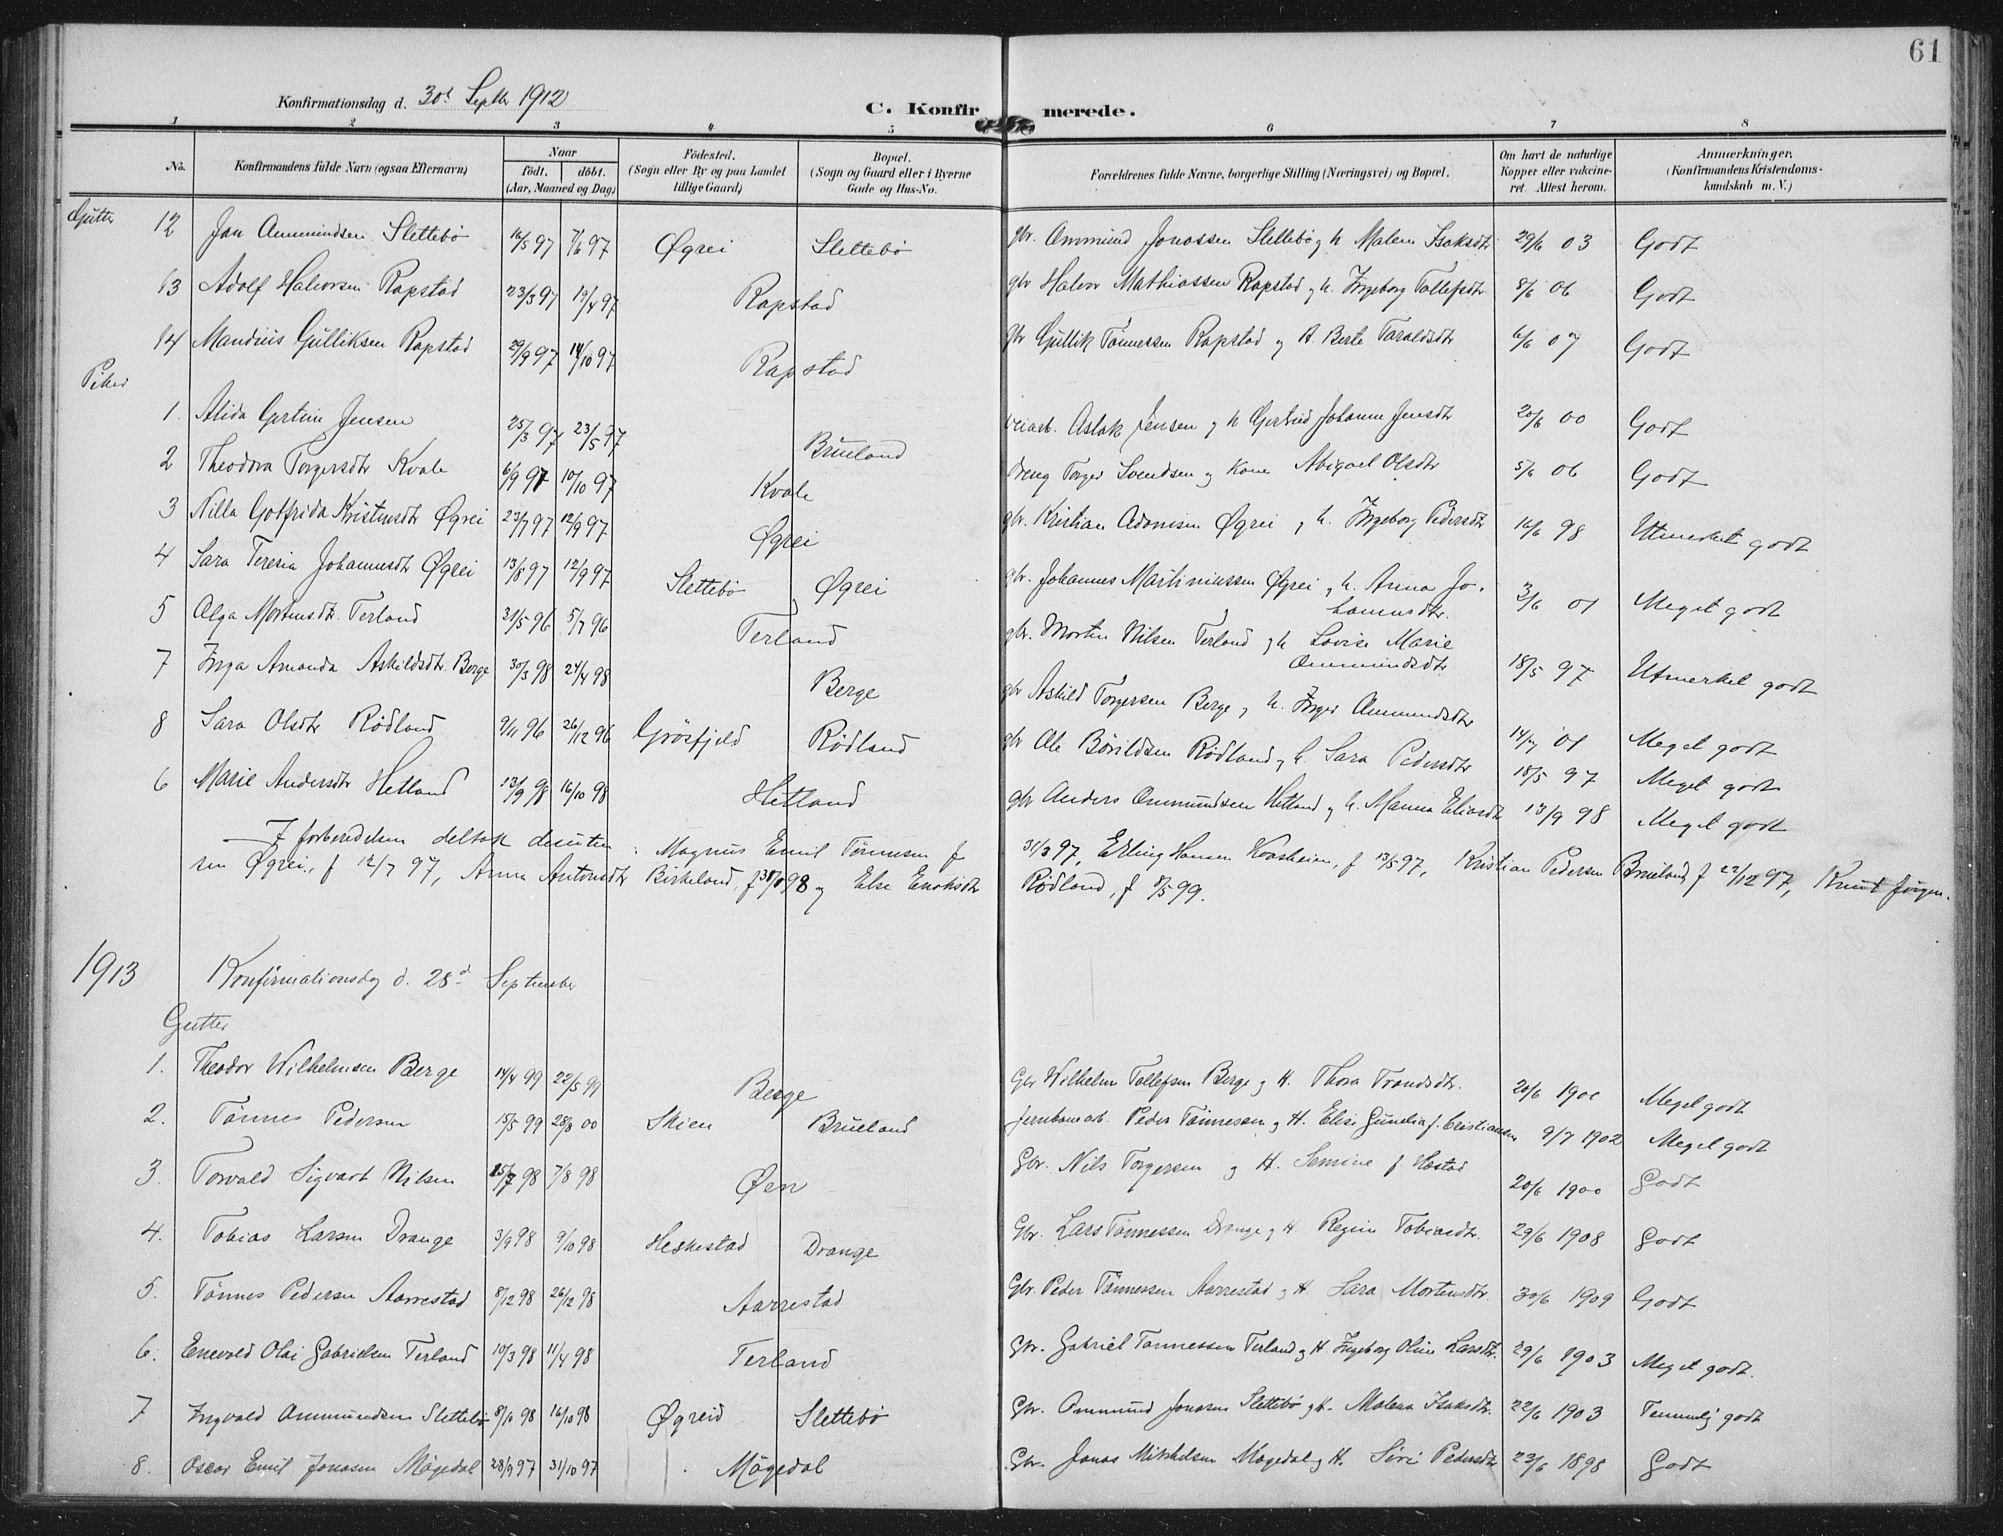 61
Konfirmationsdag d. 30d Septbr 1912
C. Konfirmerede.
1 2 3 4 5 6 7 8
No. Konfirmandens fulde Navn (ogsaa Efternavn) Naar født. døbt. (Aar, Maaned og Dag) Fødested. (Sogn eller By og paa Landet tillige Gaard) Bopæl. (Sogn og Gaard eller i Byerne Gade og Hus-No. Forældrenes fulde Navne, borgerlige Stilling (Næringsvei) og Bopæl. Om havt de naturlige Kopper eller vakcineret. Attest herom. Anmærkninger. (Konfirmandens Kristendomskundskab m. V.)
Gutter
12 Jan Ommundsen Slettebø 16/5 97 7/6 97 Øgrei Slettebø gbr. Ommund Jonassen Slettebø og h. Malene Isaksdtr 29/6 03 Godt
13 Adolf Halvorsen Rapstad 23/3 97 19/4 97 Rapstad gbr Halvor Mathiassen Rapstad og h. Ingeborg Tollefsdtr 8/6 06 Godt
14 Mandius Gulliksen Rapstad 29/9 97 14/10 97 Rapstad gbr Gullik Tønnessen Rapstad og h. Berte Taraldsdtr 6/6 07 Godt
Piker
1. Alida Gertine Jensen 25/3 97 23/5 97 Brueland veiarb. Aslak Jensen og h Gertrud Johanne Jensdtr 20/6 00 Godt
2 Theodora Torgersdtr Kvale 6/9 97 10/10 97 Kvale dreng Torger Svendsen og Kone Abigael Olsdtr 5/6 06 Godt
3 Nilla Gotfrida Kristensdtr Øgrei 23/7 97 12/9 97 Øgrei gbr. Kristian Adamsen Øgrei og h. Ingeborg Pedersdtr 16/6 98 Utmerket godt
4 Sara Teresia Johannesdtr Øgrei 13/8 97 12/9 97 Slettebø Øgrei gbr. Johannes Martiniussen Øgrei og h. Anna Johannesdtr. 3/6 01 Meget godt
5 Olga Mortensdtr. Terland 31/5 96 5/7 96 Terland gbr. Morten Nilsen Terland og h Lovise Marie Ommundsdtr 18/5 97 Utmerket godt
7 Inga Amanda Askildsdtr. Berge 30/3 98 24/4 98 Berge gbr Askild Torgersen Berge og h. Inger Ommundsdtr 14/7 01 Meget godt
8 Sara Olsdtr Rødland 9/11 96 26/12 96 Grøsfjeld Rødland gbr Ole Børildsen Rødland og h. Sara Pedersdtr 18/5 97 Meget godt
6 Marie Andersdtr Hetland 13/9 98 16/10 98 Hetland gbr Anders Ommundsen Hetland og h. Manna Eliasdtr 13/9 98 Meget godt
I forberedelsen deltok desuten: Magnus Emil Tønnesen f 31/3 97, Erling Hansen f 13/5 97, Kristian Pedersen Brueland f 22/12 97, Knut Jørgen-
sen Øgrei, f 12/7 97, Anna Antonsdtr Birkeland, f 98 og Else Enoksdtr Rødland, f 8/5 99.
1913 Konfirmationsdag d. 28d September
Gutter
1. Theodor Wilhelmsen Berge 14/4 99 22/5 99 Berge Gbr Wilhelm Tollefsen Berge og H. Thora Trondsdtr. 20/6 1900 Meget godt
2. Tønnes Pedersen 15/5 99 28/8 00 Skien Brueland Jernbanearb. Peder Tønnessen og H. Elise Gunelia f. Cristiansen 9/7 1902 Meget godt
3. Torvald Sigvart Nilsen 25/7 98 7/8 98 Øen Gbr. Nils Torgersen og H. Semine f. Hæstad 20/6 1900 Godt
4. Tobias Larsen Drange 3/9 98 9/10 98 Heskestad Drange Gbr. Lars Tønnessen Drange og H. Regine Tobiasdtr. 29/6 1908 Godt
5. Tønnes Pedersen Aarrestad 8/12 98 26/12 98 Aarrestad Gbr. Peder Tønnessen Aarrestad og H. Sara Mortensdtr. 30/6 1909 Godt
6. Enevald Olai Gabrielsen Terland 10/3 98 11/4 98 Terland Gbr. Gabriel Tønnessen Terland og H Ingeborg Oline Larsdtr. 29/6 1903 Meget godt.
7 Ingvald Ommundsen Slettebø 98 16/10 98 Øgreid Slettebø Gbr. Ommund Jonassen Slettebø og h. Malena Isaksdtr. 22/6 1903 Temmelig godt
8. Oscar Emil Jonasen Mågedal 28/9 97 31/10 97 Mågedal Gbr. Jonas Mikkelsen Mågedal og H. Siri Pedersdtr 23/6 1898 Godt